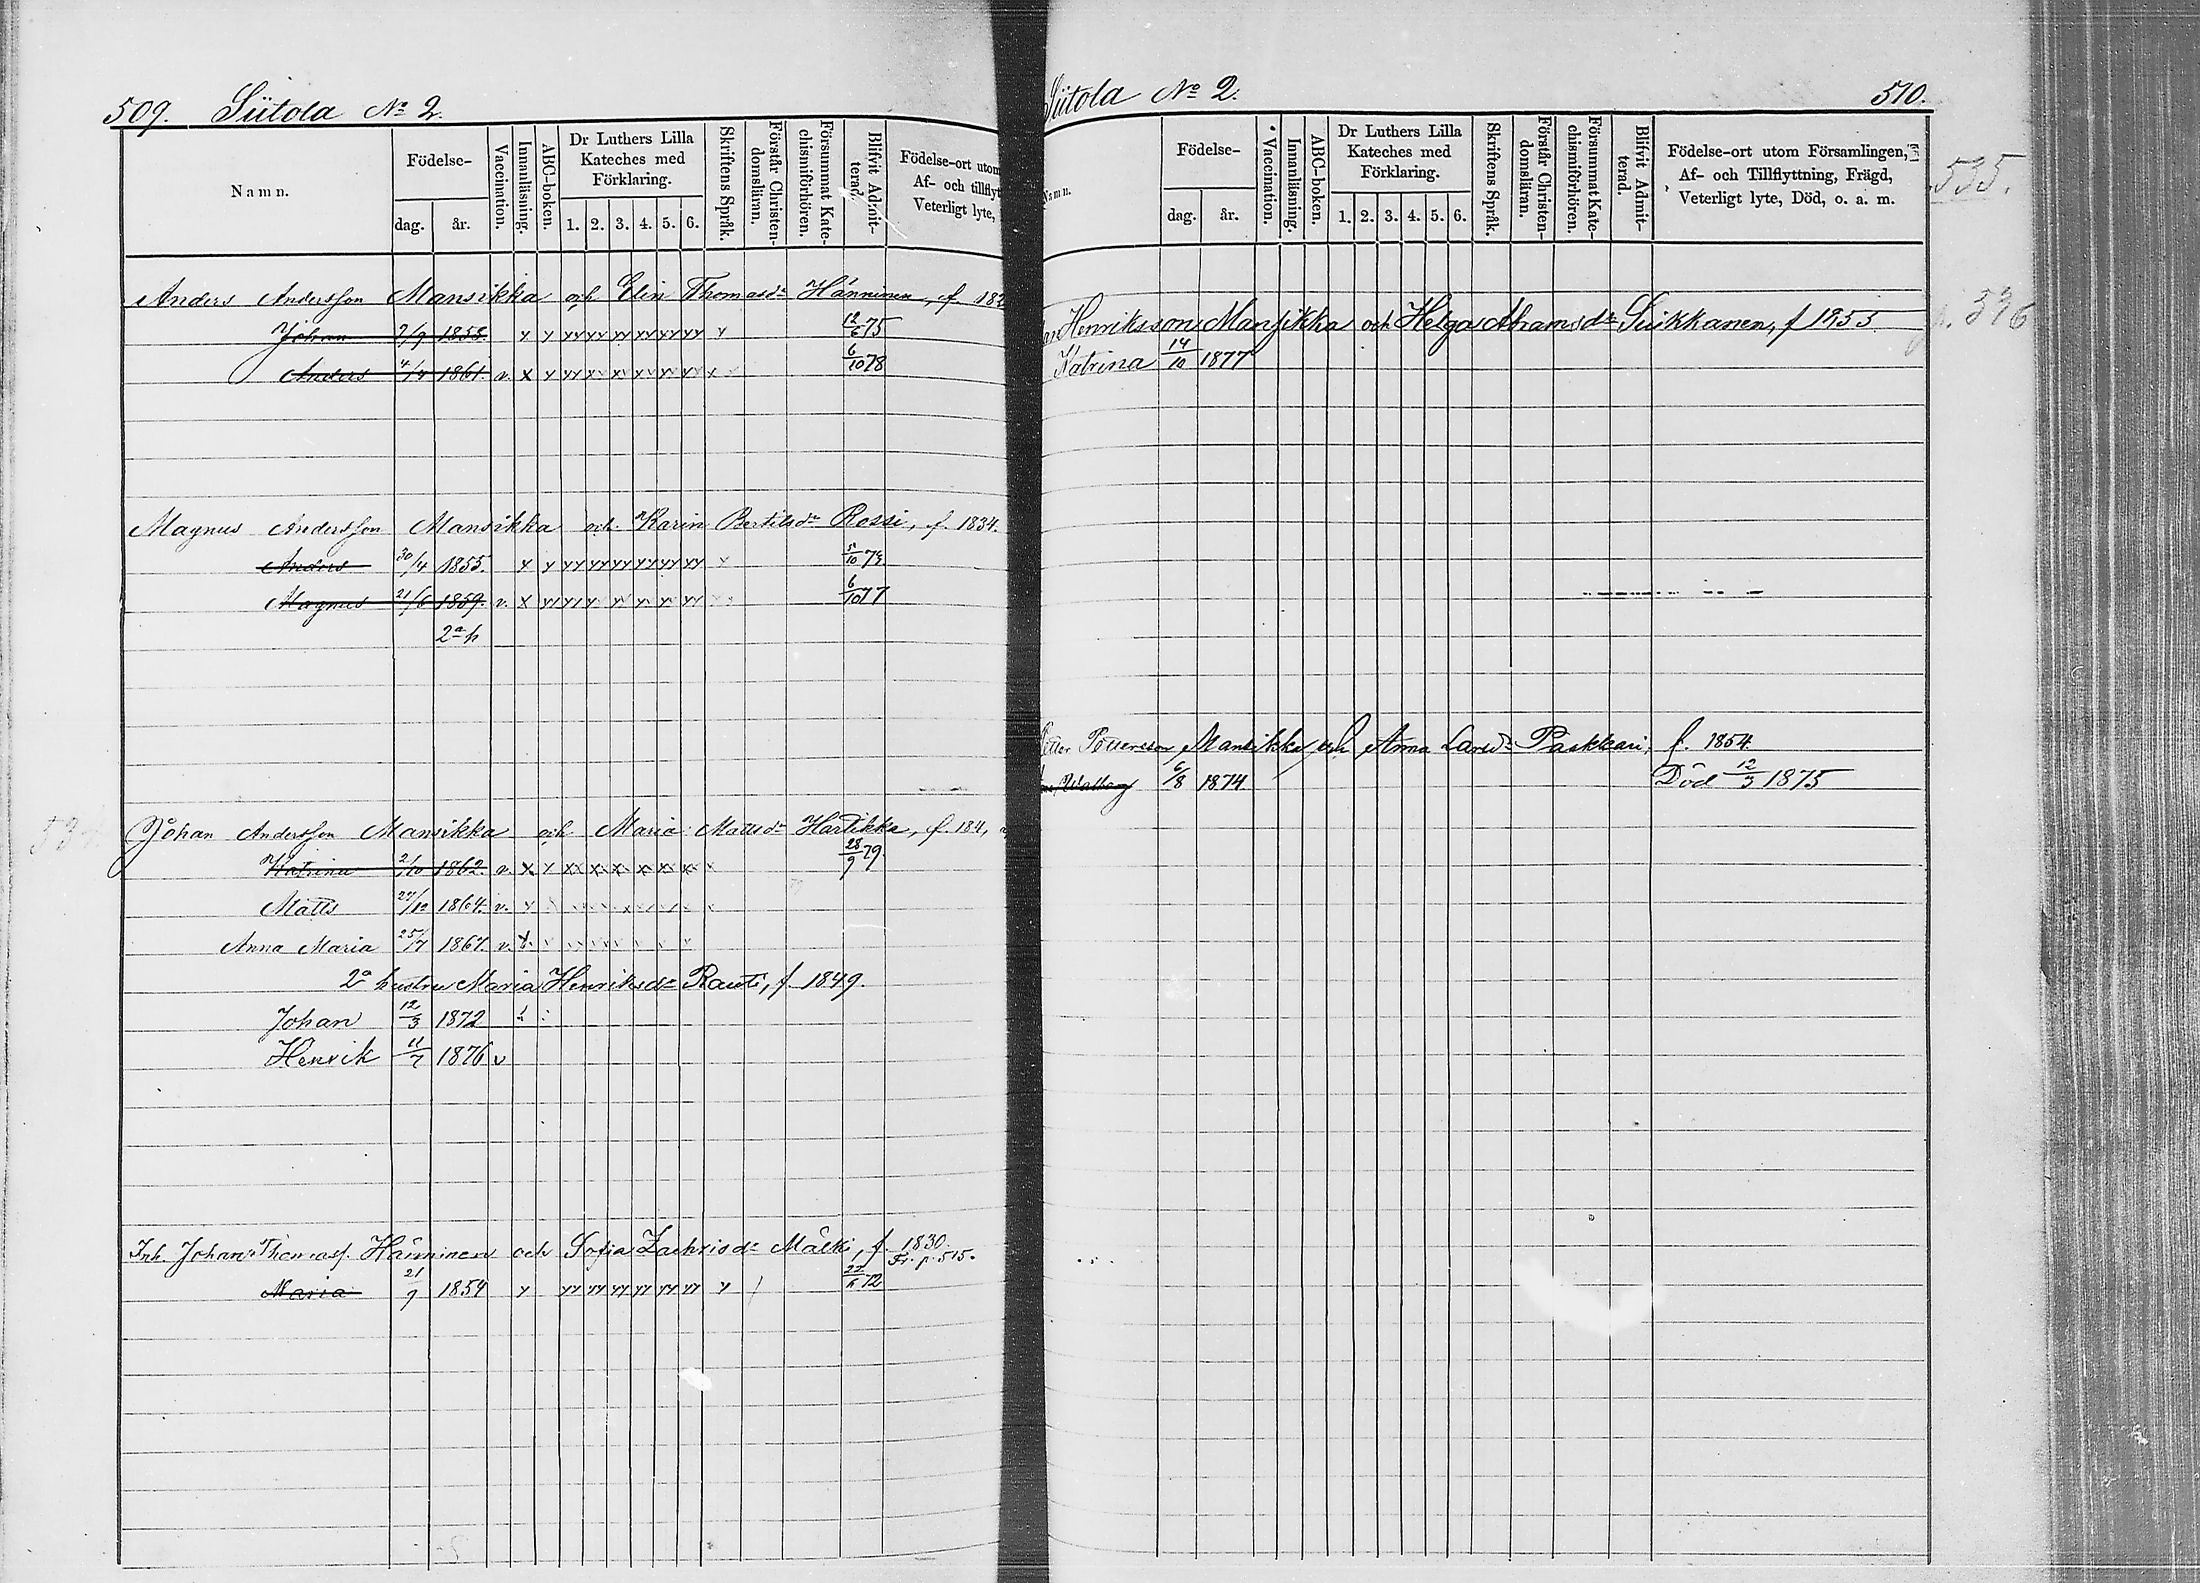 509. Siitola No 2.
Namn.
Födelse-
dag. år.
Vaccination.
Innanläsning.
ABC-boken.
Dr Luthers Lilla Kateches med Förklaring.
1. 2. 3. 4. 5. 6.
Skriftens Språk.
Förstår Christen-domsläran.
Försummat Kate-chismiförhören.
Blifvit Admit-terad.
Födelse-ort utom
Af- och tillflyt
Veterligt lyte,
Anders Andersson Mansikka och Elin Thomasdr Hänninen, f. 182
Johan 2/9 1858. 12/6 75
Anders 4/4 1861. v. 6/10 78
Magnus Andersson Mansikka och Karin Bertilsdr Rossi, f. 1834.
Anders 30/4 1855. 5/10 73
Magnus 21/6 1859. v. 6/10 77
2a h
Johan Andersson Mansikka och Maria Mattsdr Hartikka, f. 184
Katrina 2/10 1862. v. 28/9 79.
Matts 27/12 1864. v.
Anna Maria 25/7 1867. v.
2a hustru Maria Henriksdr Rauti, f. 1849.
Johan 12/3 1872
Henrik 11/7 1876 v
Inh. Johan Thomass. Hänninen och Sofia Zachrisdr Mälki, f. 1830.
Fr. p. 515.
Maria 21/9 1854 72
Siitola No 2. 510.
Namn.
Födelse-
dag. år.
Vaccination.
Innanläsning.
ABC-boken.
Dr Luthers Lilla Kateches med Förklaring.
1. 2. 3. 4. 5. 6.
Skriftens Språk.
Förstår Christen-domsläran.
Försummat Kate-chismiförhören.
Blifvit Admit-terad.
Födelse-ort utom Församlingen,
Af- och Tillflyttning, Frägd,
Veterligt lyte, Död, o. a. m.
535.
Henriksson Mansikka och Helga Abramsdr Suikkanen, f 1855
p. 536
Katrina 14/10 1877
Petter Pettersson Mansikka och Anna Larsdr Paakkari, f. 1854
Walborg 6/8 1874 Död 12/3 1875